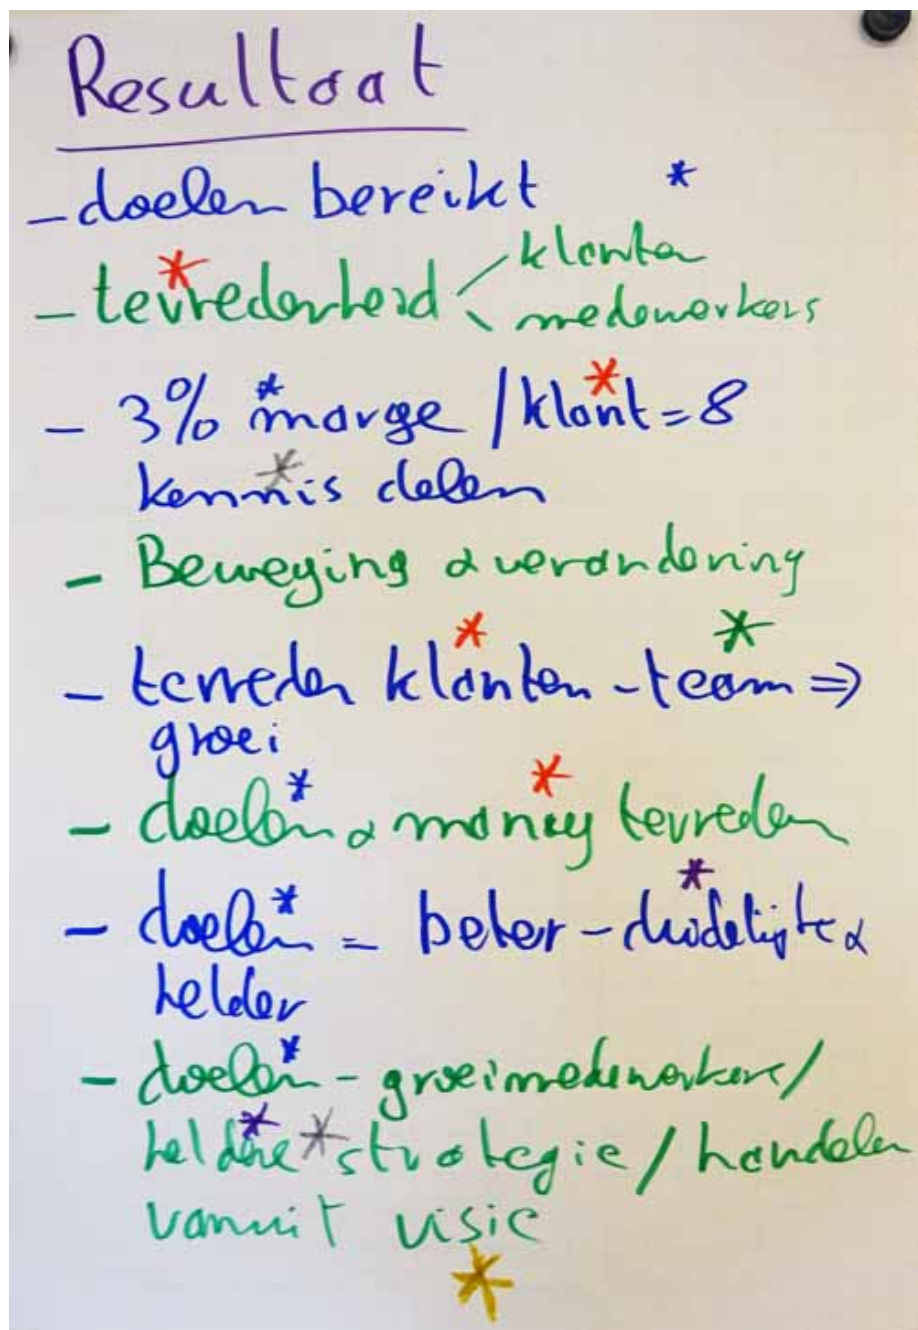 Resultaat
- doelen bereikt *
- tevredenheid < klanten
medewerkers
- 3% marge / klant = 8
kennis delen
- Beweging & verandering
- tevreden klanten - team ⇒
groei
- doelen & money tevreden
- doelen = beter - duidelijke &
helder
- doelen - groei medewerkers /
heldere * strategie / handelen
vanuit visie
*